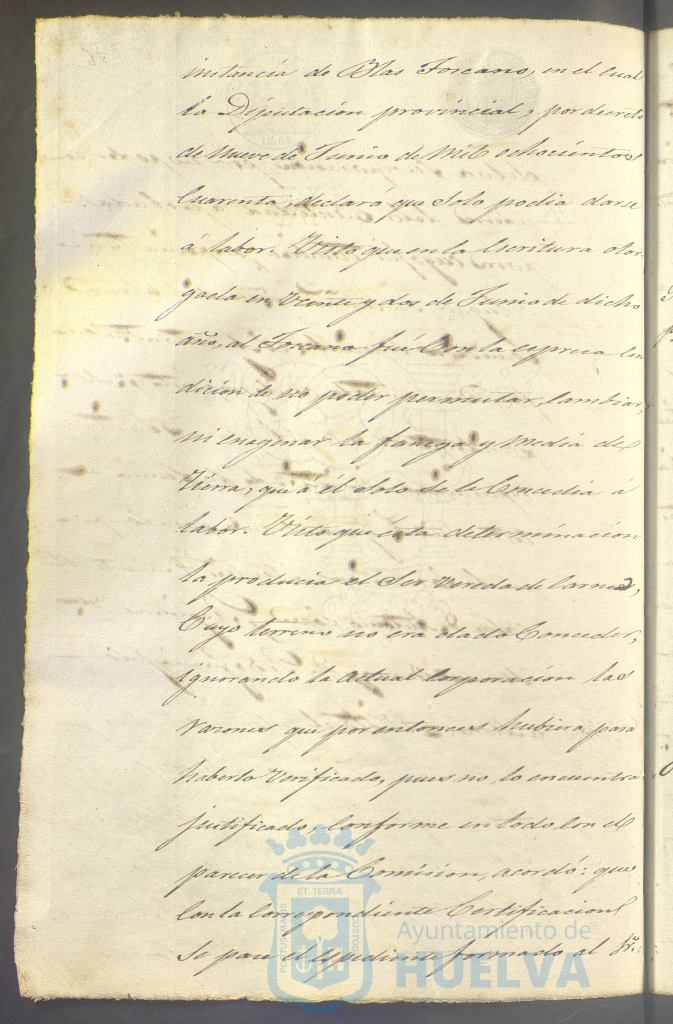 instancia de Blas Toscano, en el cual
la Diputacion provincial, por decreto
de nueve de Junio de mil ochocientos
Cuarenta, declaró que solo podia darse
á labor. Visto que en la Escritura otor
gada en Veinte y dos de Junio de dicho
año, al Toscano fué con la espresa con
dicion de no poder permutar, cambiar,
ni enagenar la fanega y media de
tierra, que á él solo se le Concedia á
labor. Visto que esta determinacion
la producia el Ser Vereda de Carnes,
Cuyo terreno no era dado Conceder,
ignorando la actual Corporacion las
razones que por entonces hubiera para
haberlo Verificado, pues no lo encuentra
justificado; Conforme en todo con el
parecer de la Comision, acordó: que
Con la Correspondiente Certificacion
se pase el Espediente formado al Sr.
PORTUS MARIS
ET TERRÆ
CUSTODIA
Ayuntamiento de
HUELVA